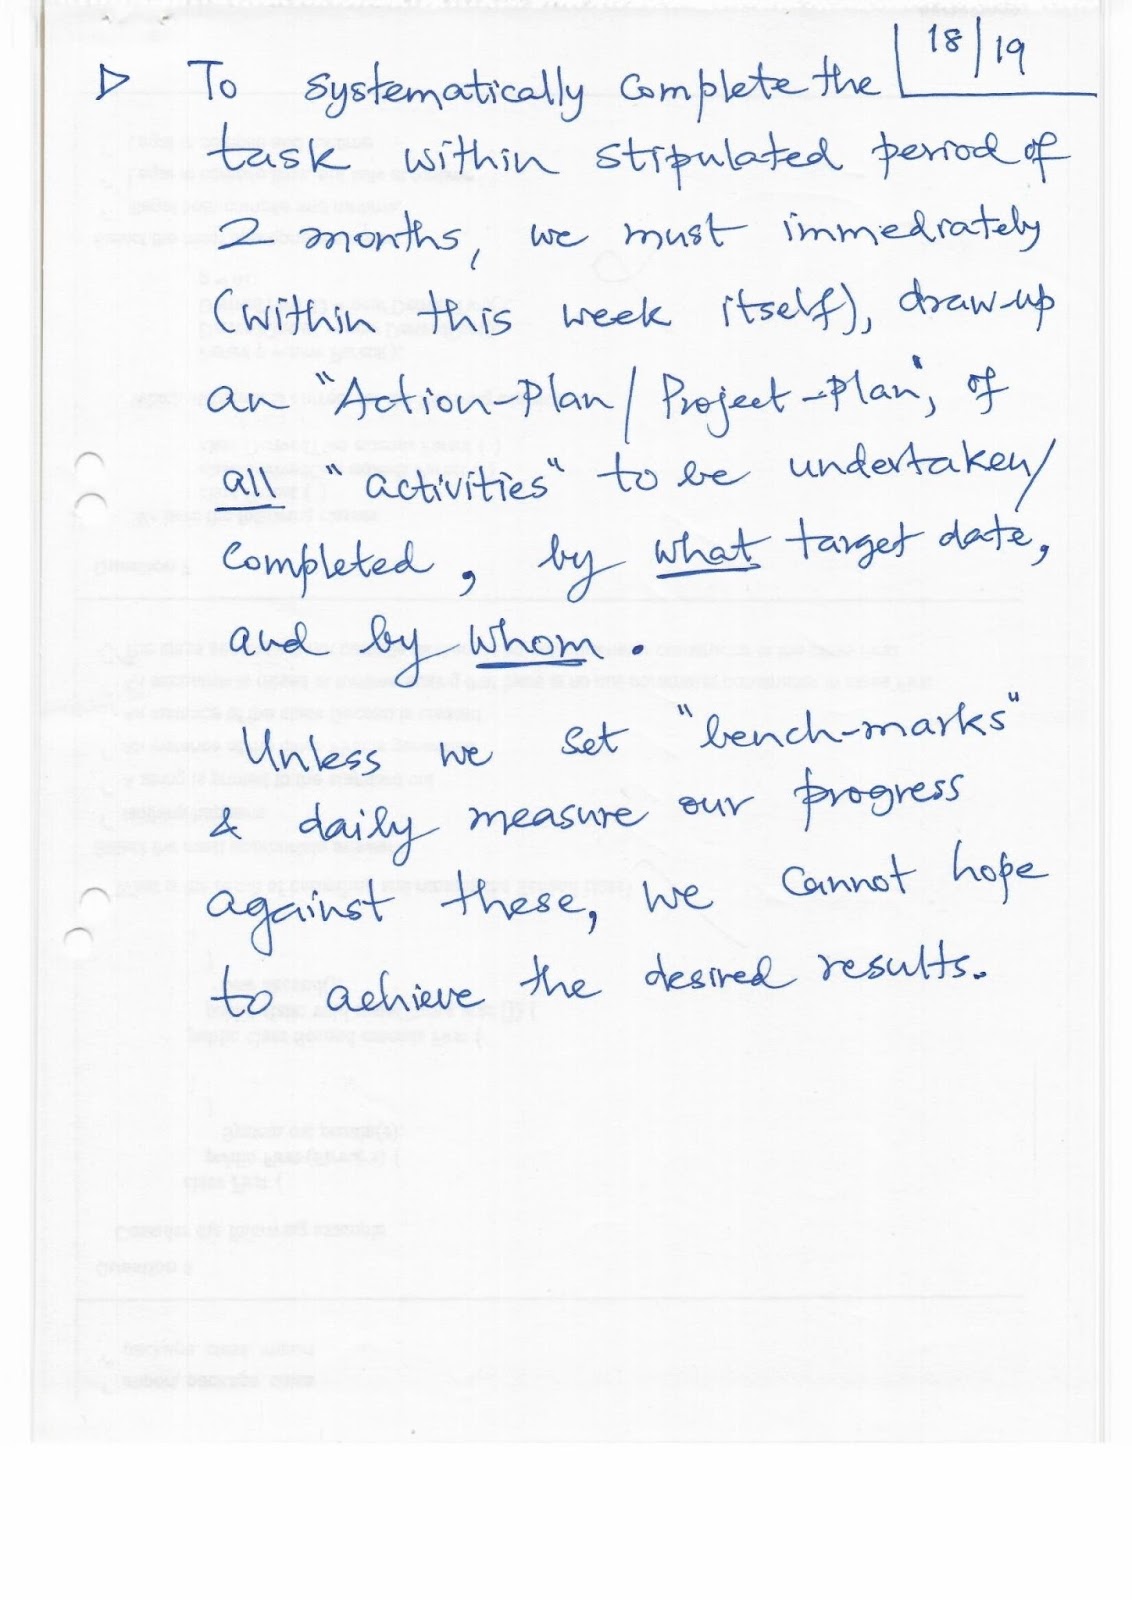 18/19
▷ To systematically complete the
task within stipulated period of
2 months, we must immediately
(within this week itself), draw-up
an "Action-Plan / Project-Plan", of
all "activities" to be undertaken/
completed, by what target date,
and by whom.
Unless we set "bench-marks"
& daily measure our progress
against these, we cannot hope
to achieve the desired results.